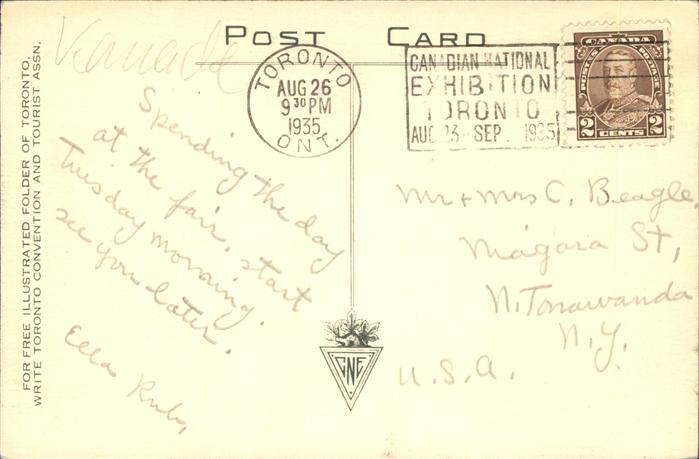 POST CARD
Kanade
TORONTO
AUG 26
9 30 PM
1935
ONT.
CANADIAN NATIONAL
EXHIBITION
TORONTO
AUG 23 - SEP. 1935
CANADA
POSTES POSTAGE
2 CENTS 2
Spending the day
at the fair, start
Tuesday morning.
see you later.
Ella
Mr + Mrs C. Beagle,
Niagara St,
N. Tonawanda
N.Y.
U.S.A.
CNE
FOR FREE ILLUSTRATED FOLDER OF TORONTO,
WRITE TORONTO CONVENTION AND TOURIST ASSN.